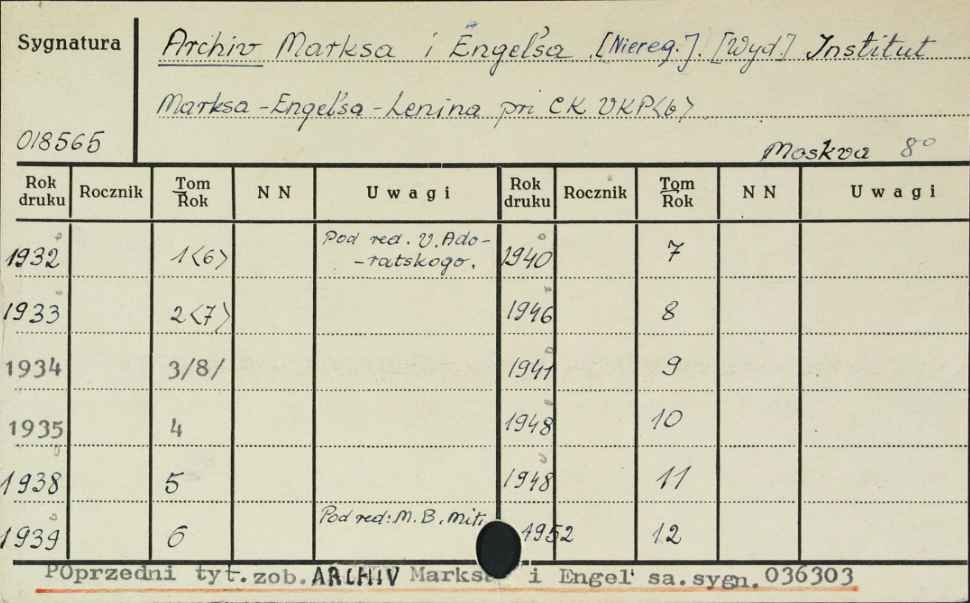 Sygnatura
Archiv Marksa i Engel'sa. [Niereg.]. [Wyd.] Institut
Marksa-Engel'sa-Lenina pri CK VKP<b>
018565
Moskva 8°
Rok druku Rocznik Tom Rok NN Uwagi Rok druku Rocznik Tom Rok NN Uwagi
1932 1<6> Pod red. V. Ado-
-ratskogo. 1940 7
1933 2<7> 1946 8
1934 3/8/ 1941 9
1935 4 1948 10
1938 5 1948 11
1939 6 Pod red: M.B. Miti 1952 12
POprzedni tyt.zob. ARCHIV Marksa i Engel'sa.sygn. 036303